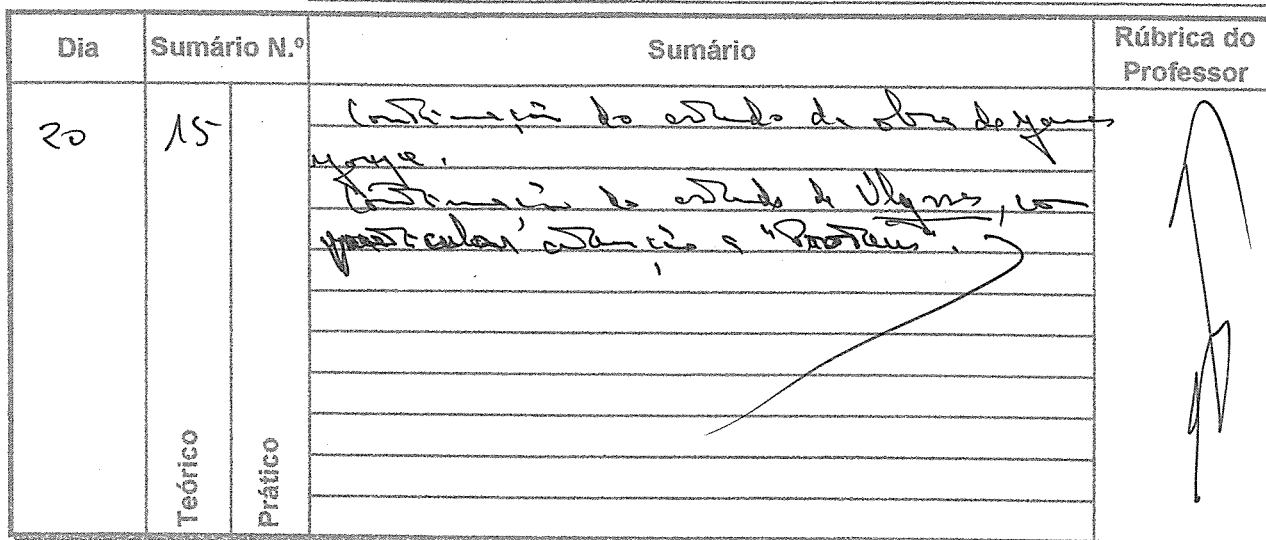 Dia
Sumário N.º
Sumário
Rúbrica do
Professor
20
15
Continuação do estudo da obra de James
Joyce.
Continuação do estudo de Ulysses, com
particular atenção a "Proteus".
Teórico
Prático